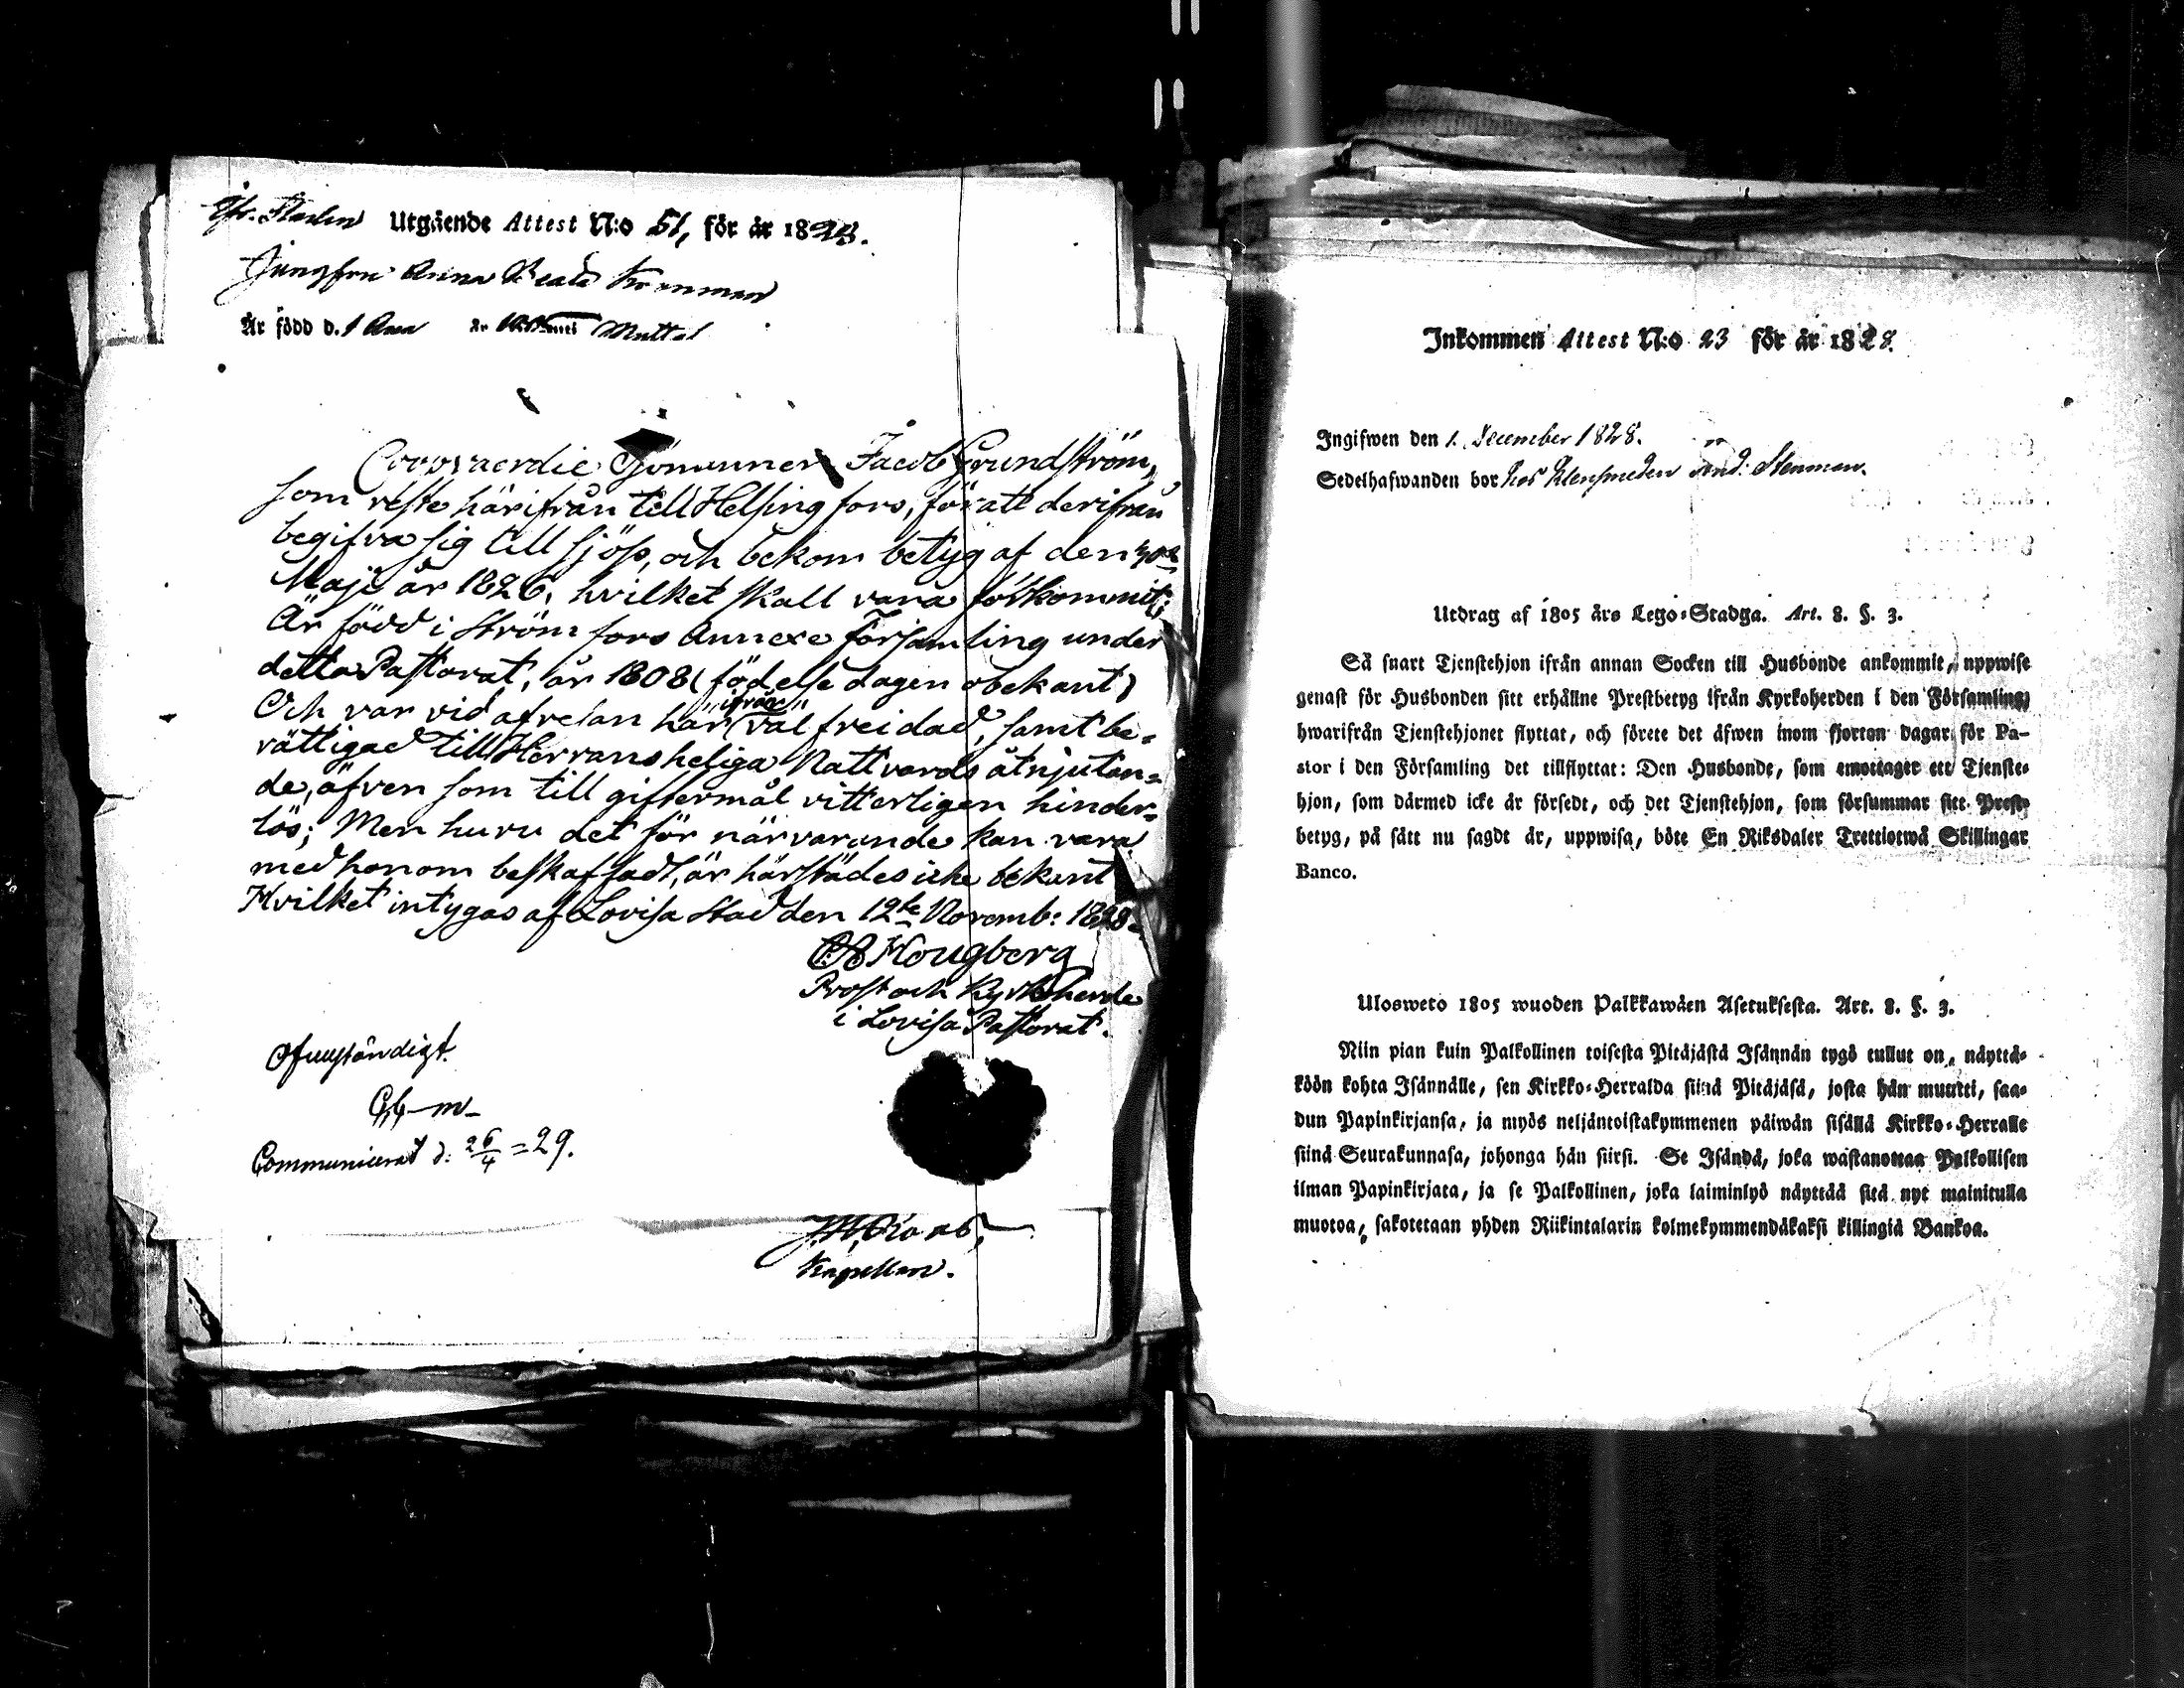 Utgående Attest N:o 51, för år 1828.
Jungfru Anna Beata
Är född d. 1
Jacob Grundström,
som reste härifrån till Helsingfors, för att derifrån
begifva sig till sjöss, och bekom betyg af den 30de
Maji år 1826, hvilket skall vara förkommit;
Är född i Strömfors Annexe Församling under
detta Pastorat, år 1808 (födelse dagen obekant)
Och var vid afresan här "ifrån" väl frejdad, samt be-
rättigad till Herrans heliga Nattvards åtnjutan-
de, äfven som till giftermål vitterligen hinder-
lös; Men huru det för närvarande kan vara
med honom beskaffadt, är härstädes icke bekant
Hvilket intygas af Lovisa Stad den 12te Novemb: 1828.
Hougberg
Prost och Kyrkoherde
i Lovisa Pastorat.
Communicerat d: 26/4 = 29.
Kapellan.
Inkommen Attest N:o 23 för år 1828.
Ingifwen den 1. December 1828.
Sedelhafwanden bor hos Klensmeden And: Stenman.
Utdrag af 1805 års Lego-Stadga. Art. 8. §. 3.
Så snart Tjenstehjon ifrån annan Socken till Husbonde ankommit, uppwise
genast för Husbonden sitt erhållne Prestbetyg ifrån Kyrkoherden i den Församling,
hwarifrån Tjenstehjonet flyttat, och förete det äfwen inom fjorton dagar för Pa-
stor i den Församling det tillflyttat: Den Husbonde, som emottager ett Tjenste-
hjon, som därmed icke är försedt, och det Tjenstehjon, som försummar sitt Prest-
betyg, på sätt nu sagdt är, uppwisa, böte En Riksdaler Trettiotwå Skillingar
Banco.
Ulosweto 1805 wuoden Palkkawäen Asetuksesta. Art. 8. §. 3.
Niin pian kuin Palkollinen toisesta Pitäjästä Isännän tygö tullut on, näyttä-
köön kohta Isännälle, sen Kirkko-Herralda siinä Pitäjäsä, josta hän muutti, saa-
dun Papinkirjansa, ja myös neljäntoistakymmenen päiwän sisällä Kirkko-Herralle
siinä Seurakunnasa, johonga hän siirsi. Se Isändä, joka wastanottaa Palkollisen
ilman Papinkirjata, ja se Palkollinen, joka laiminlyö näyttää sitä nyt mainitulla
muotoa, sakotetaan yhden Riikintalarin kolmekymmendäkaksi killingiä Bankoa.